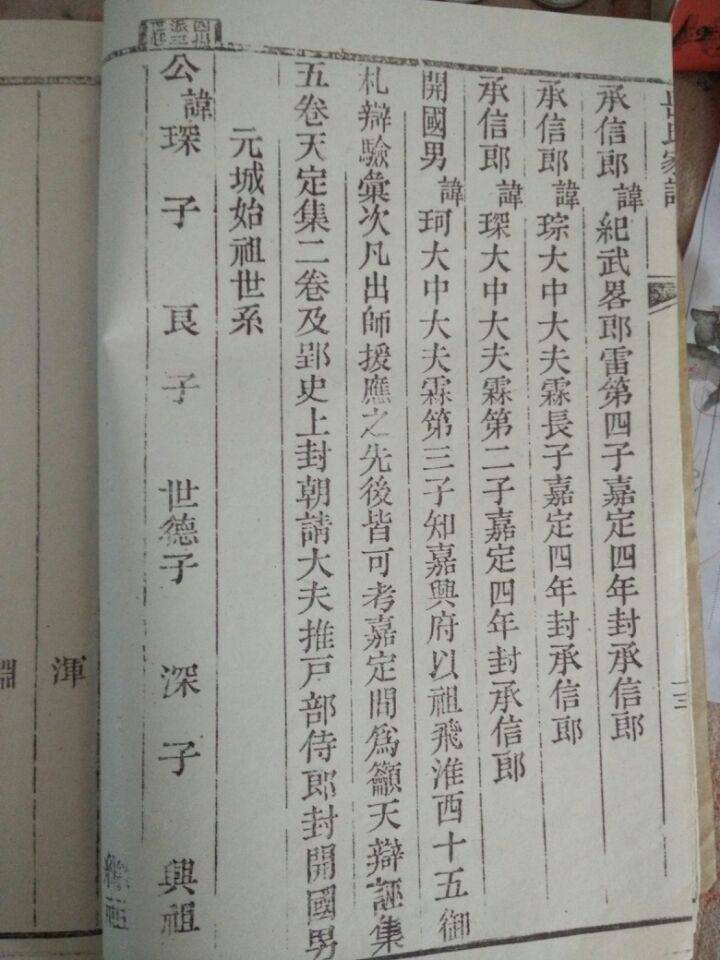 岳氏家譜
十三
承信郎諱紀武畧郎雷第四子嘉定四年封承信郎
承信郎諱琮大中大夫霖長子嘉定四年封承信郎
承信郎諱琛大中大夫霖第二子嘉定四年封承信郎
開國男諱珂大中大夫霖第三子知嘉興府以祖飛淮西十五御
札辯驗彙次凡出師援應之先後皆可考嘉定間爲籲天辯誣集
五卷天定集二卷及郢史上封朝請大夫推戸部侍郎封開國男
元城始祖世系
公諱琛子 良子 世德子 深子 興祖
渾
淵